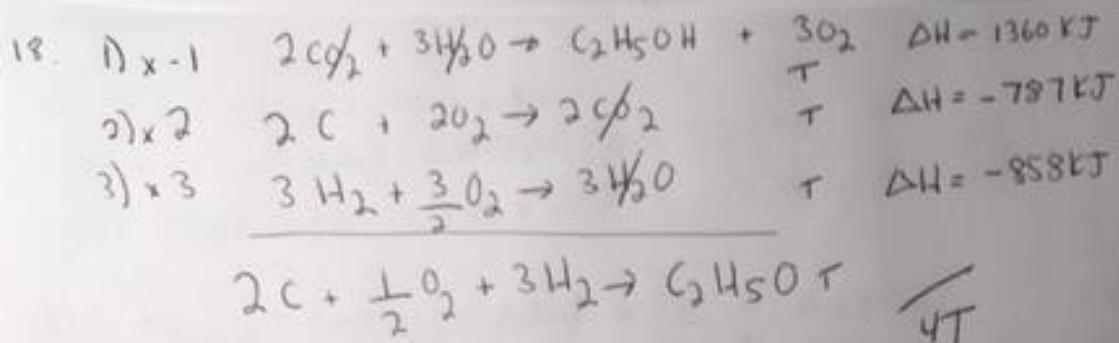 18. 1) x -1 2CO2 + 3H2O → C2H5OH + 3O2 ΔH = 1360 KJ
T
2) x 2 2C + 2O2 → 2CO2 T ΔH = -787 KJ
3) x 3 3H2 + 3/2 O2 → 3H2O T ΔH = -858 KJ
2C + 1/2 O2 + 3H2 → C2H5O T
/4T